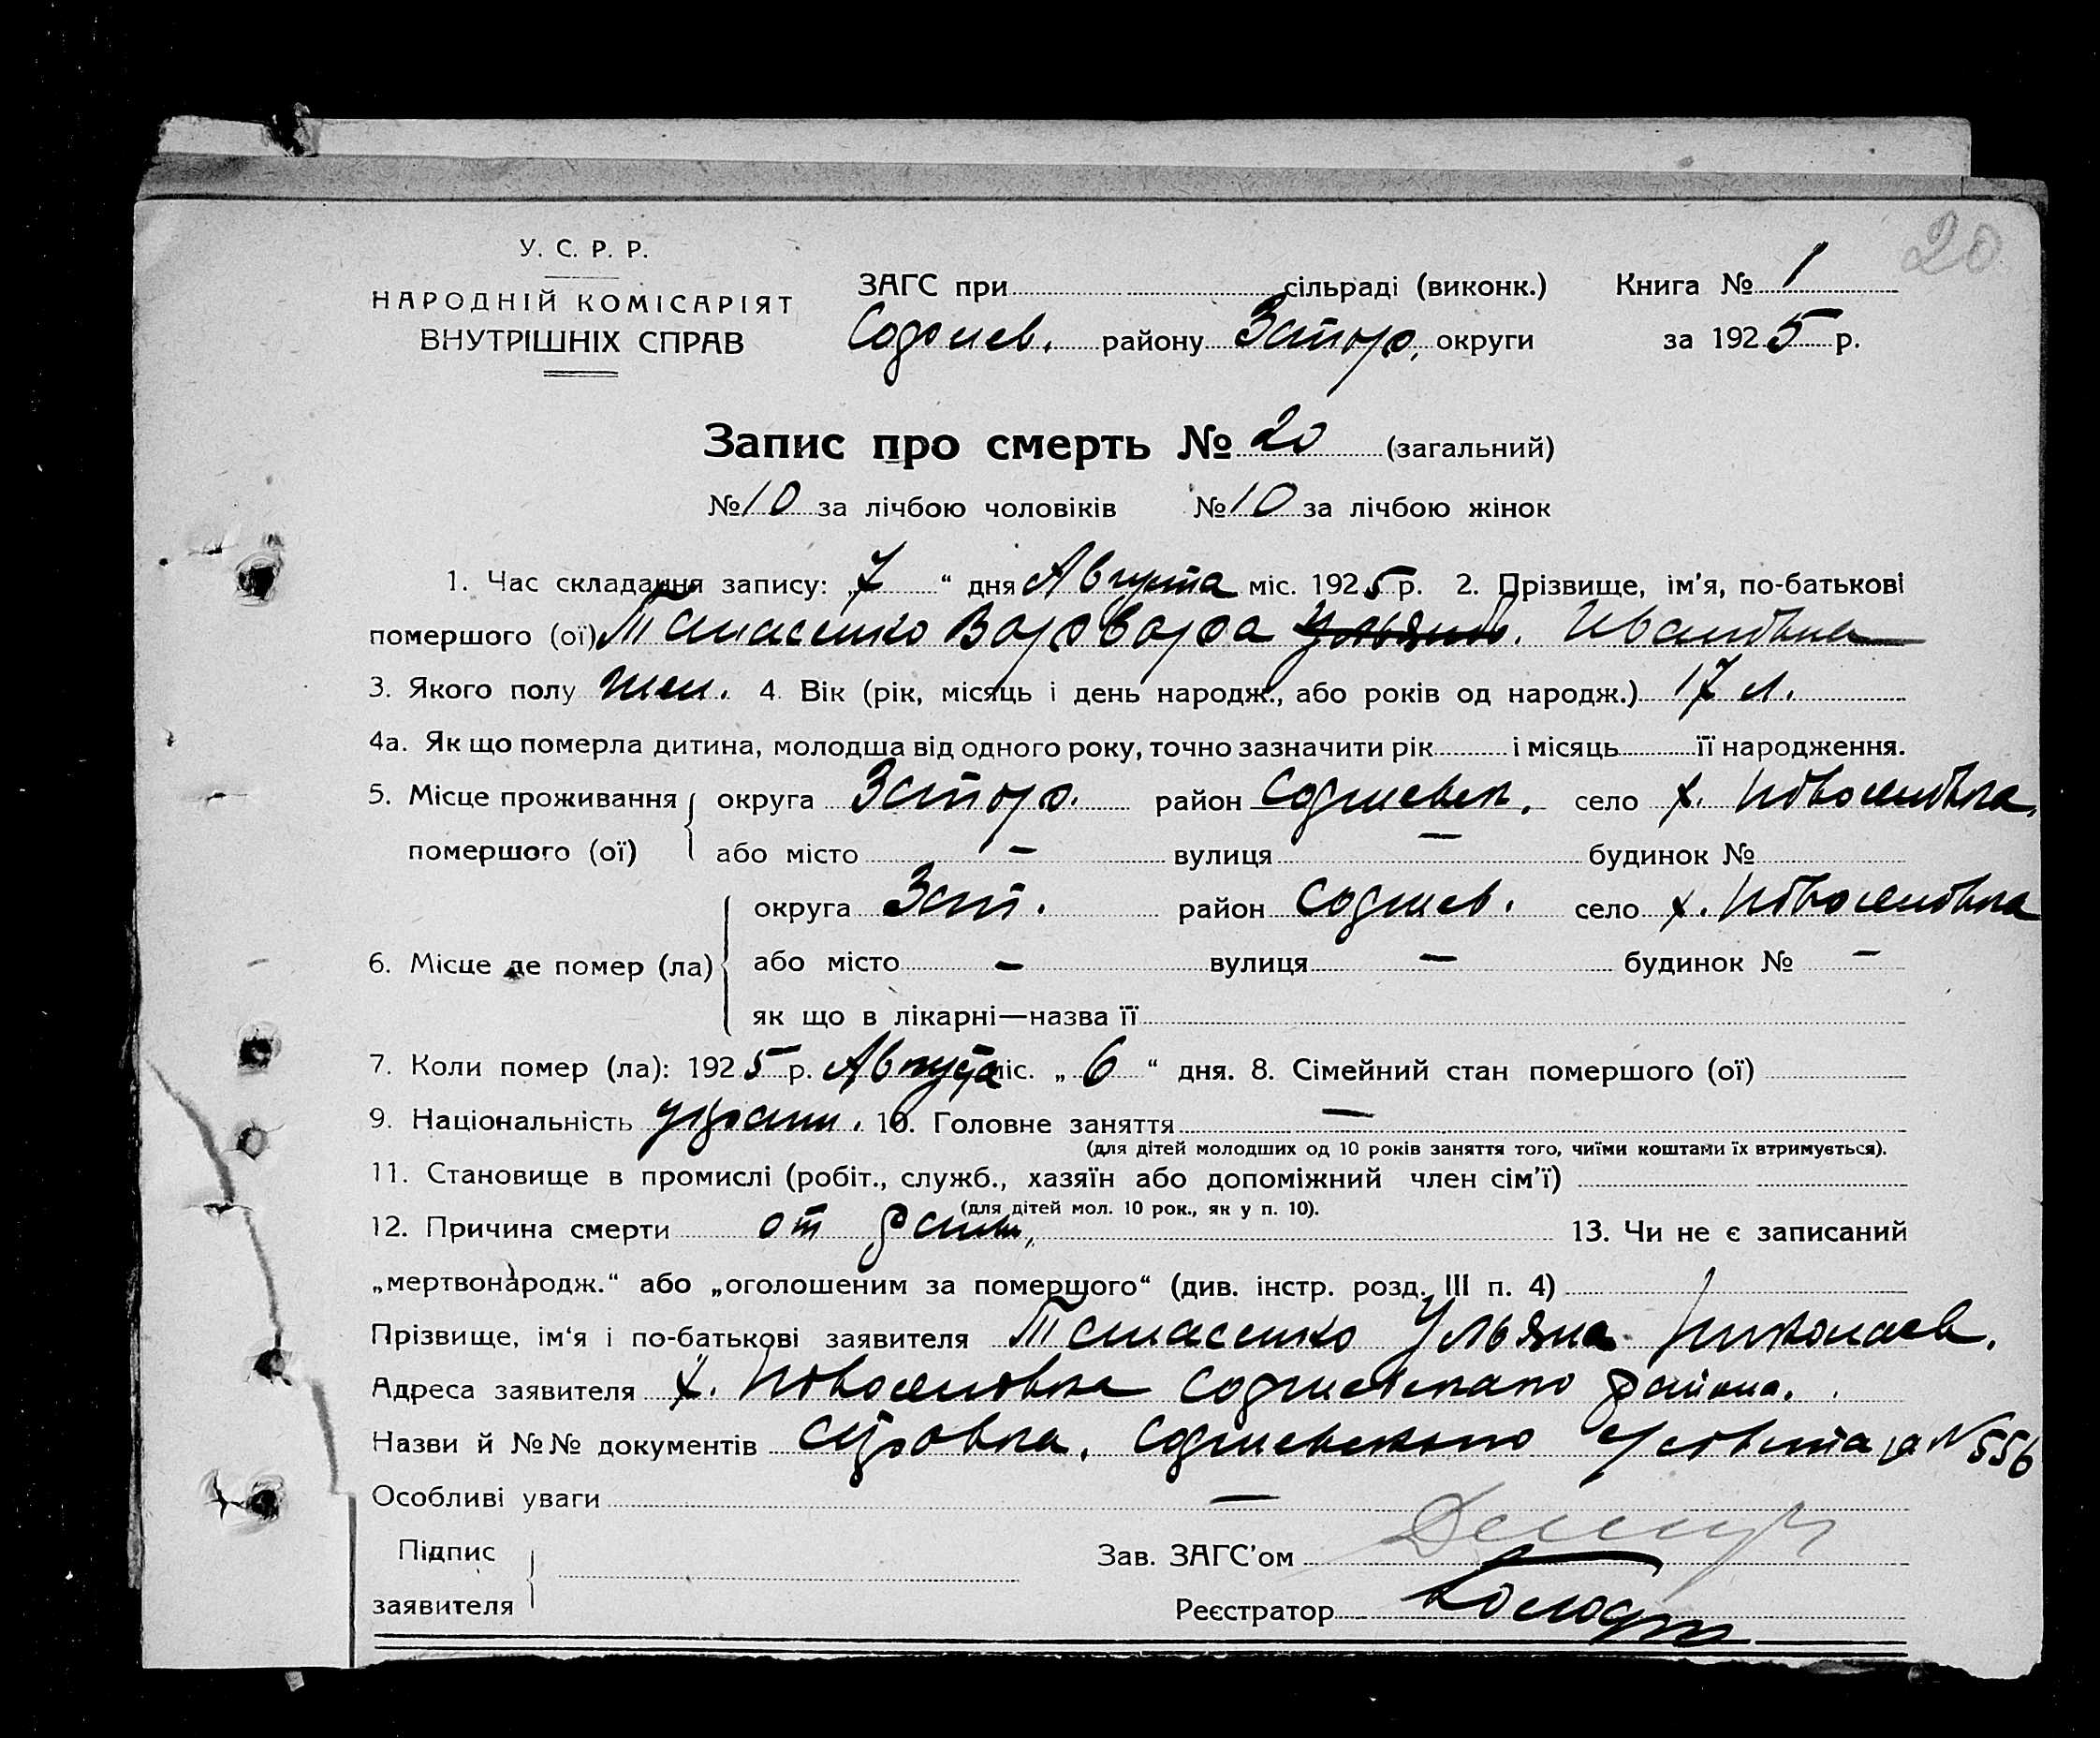 20
У. С. Р. Р.
НАРОДНІЙ КОМІСАРІЯТ
ВНУТРІШНІХ СПРАВ
ЗАГС при сільраді (виконк.) Книга № 1
району Запор. округи за 1925 р.
Запис про смерть № 20 (загальний)
№ 10 за лічбою чоловіків № 10 за лічбою жінок
1. Час складання запису: „7“ дня Августа міс. 1925 р. 2. Прізвище, ім'я, по-батькові
помершого (ої) Варвара Ульян. Ивановна
3. Якого полу жен. 4. Вік (рік, місяць і день народж., або років од народж.) 17 л.
4а. Як що померла дитина, молодша від одного року, точно зазначити рік і місяць її народження.
5. Місце проживання округа Запор. район село х.
помершого (ої) або місто — вулиця — будинок №
округа Зап. район село х.
6. Місце де помер (ла) або місто — вулиця — будинок № —
як що в лікарні—назва її
7. Коли помер (ла): 1925 р. Августа міс. „6“ дня. 8. Сімейний стан помершого (ої)
9. Національність украин. 10. Головне заняття —
(для дітей молодших од 10 років заняття того, чиїми коштами їх втримується).
11. Становище в промислі (робіт., служб., хазяїн або допоміжний член сім'ї)
(для дітей мол. 10 рок., як у п. 10).
12. Причина смерти от раны 13. Чи не є записаний
„мертвонародж.“ або „оголошеним за померщого“ (див. інстр. розд. III п. 4)
Прізвище, ім'я і по-батькові заявителя Ульяна Николаев.
Адреса заявителя х. района.
Назви й №№ документів справка, за № 556
Особливі уваги —
Підпис
заявителя
Зав. ЗАГС'ом
Реєстратор